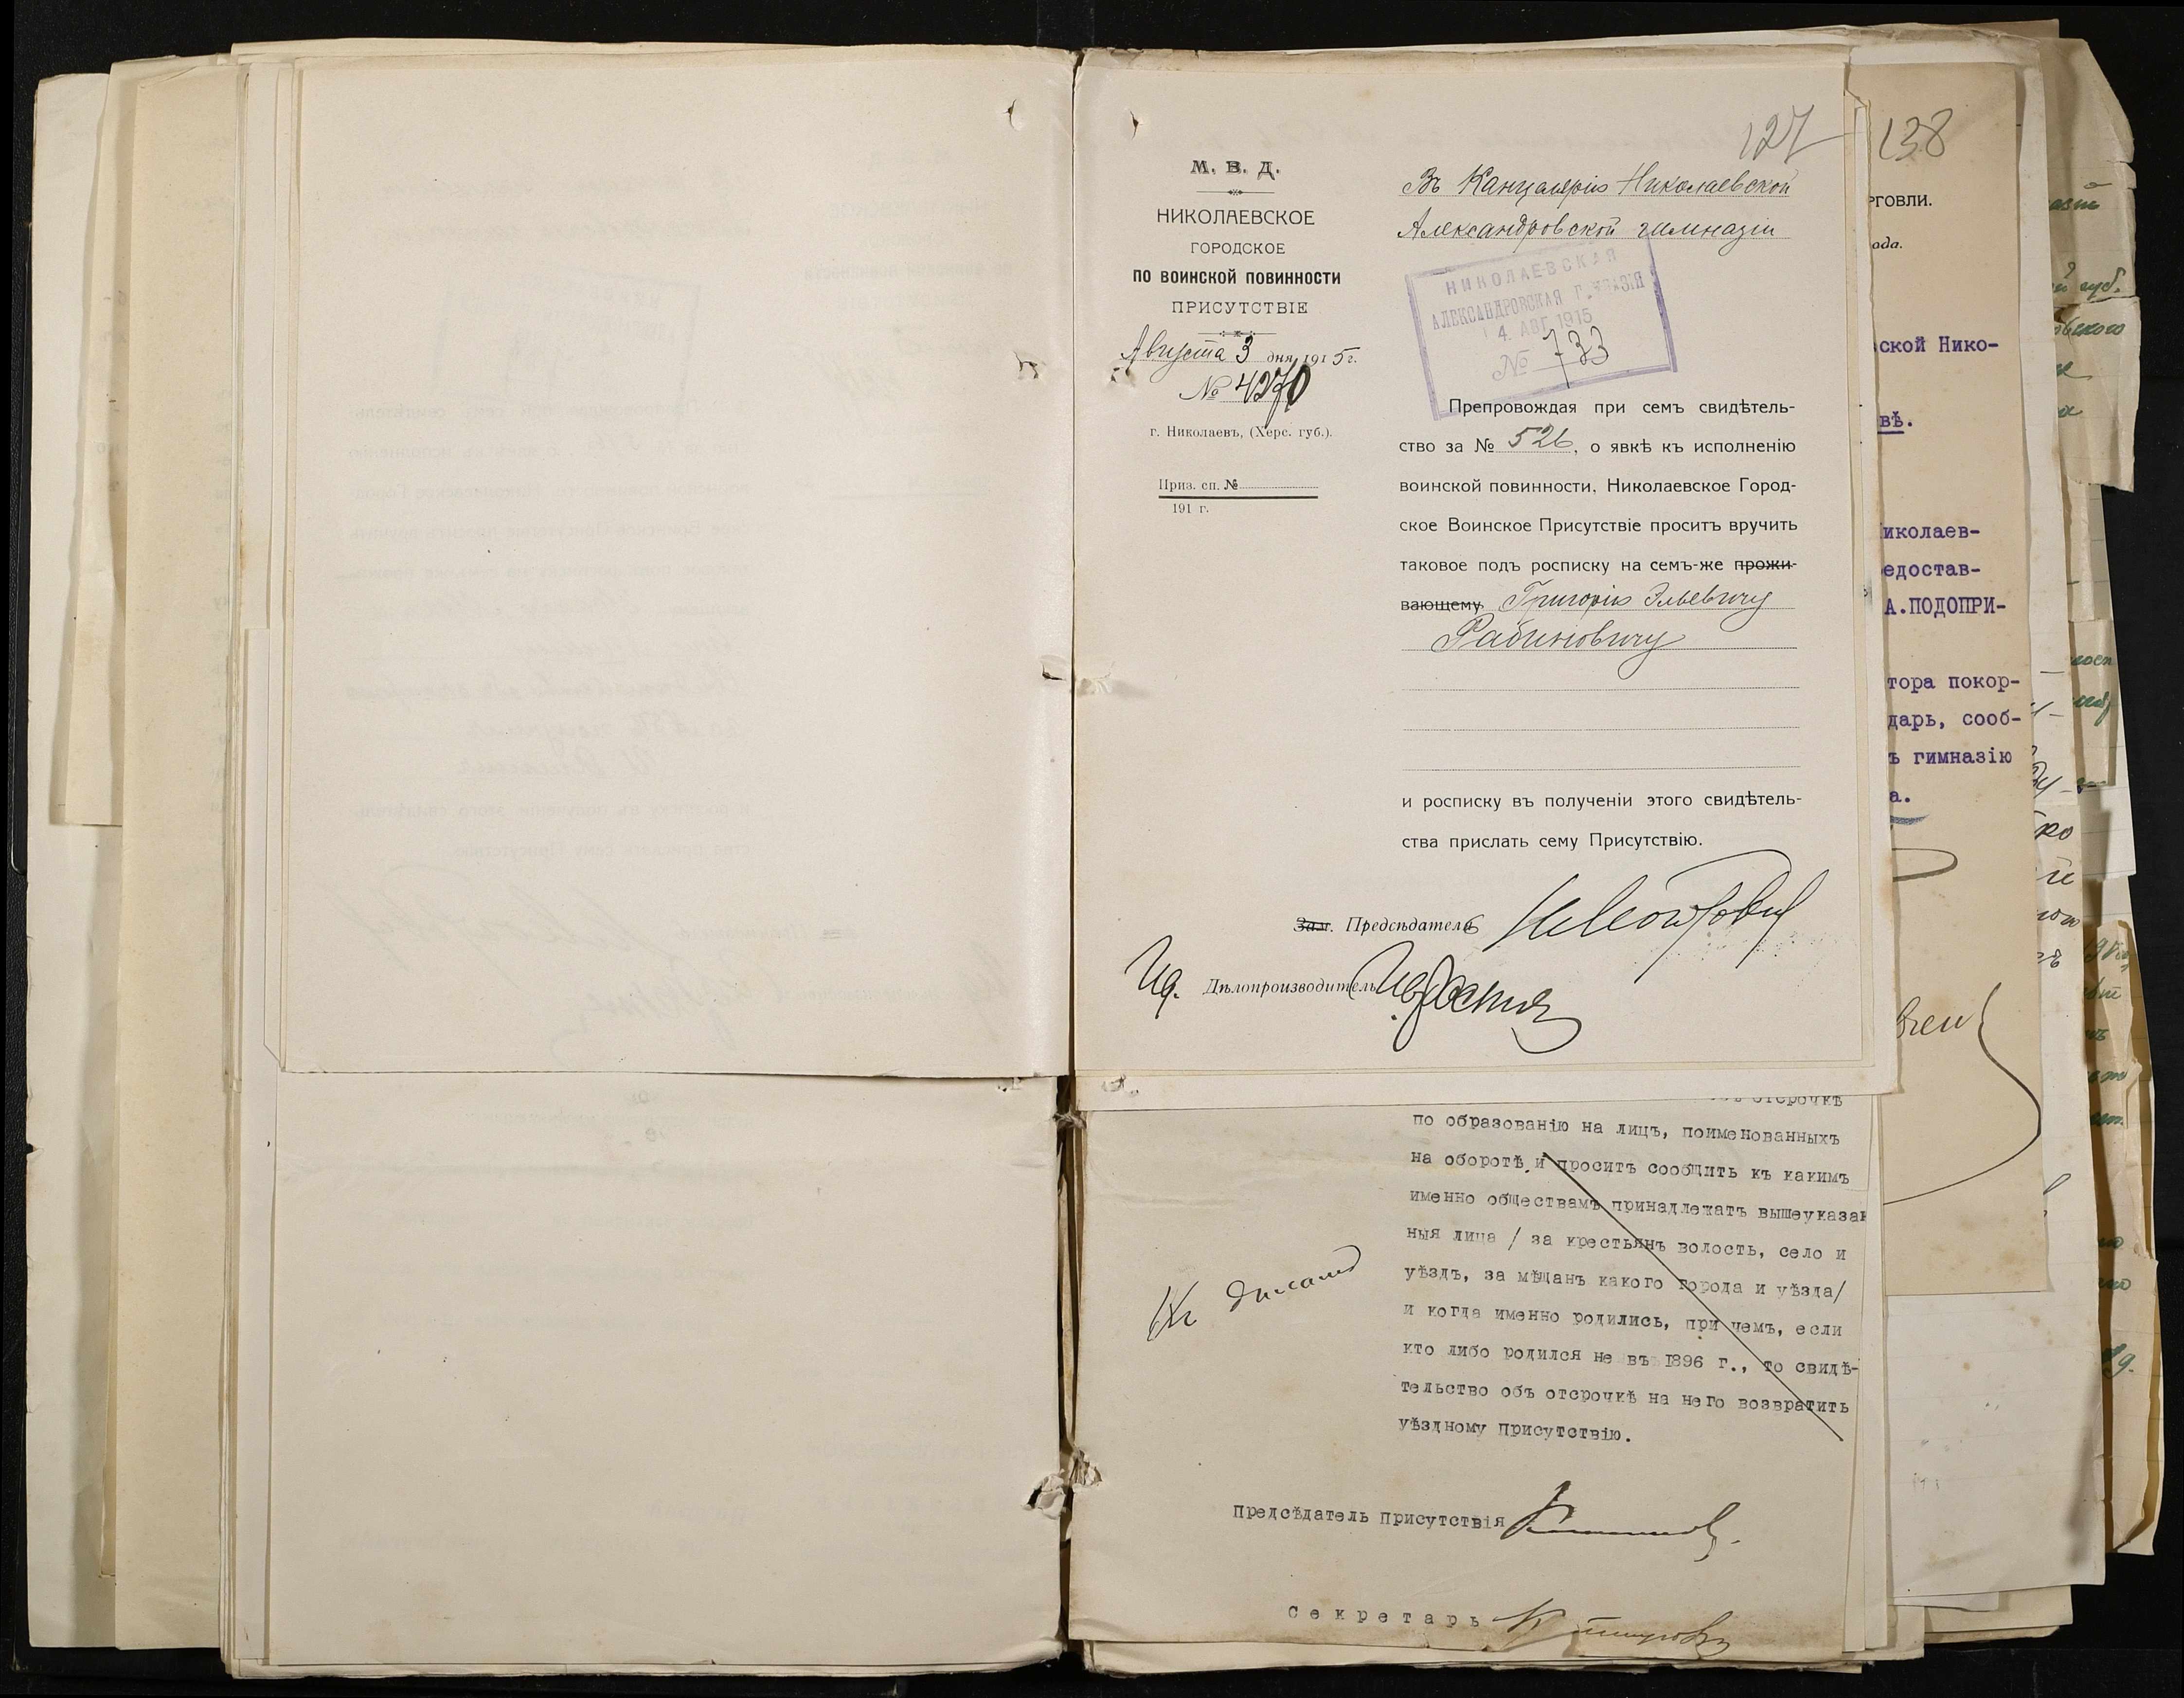 127
138
М. В. Д.
НИКОЛАЕВСКОЕ
ГОРОДСКОЕ
ПО ВОИНСКОЙ ПОВИННОСТИ
ПРИСУТСТВІЕ
Августа 3 дня 1915 г.
№ 4270
г. Николаевъ, (Херс. губ.).
Приз. сп. №
191 г.
Въ Канцелярію Николаевской
Александровской гимназіи
НИКОЛАЕВСКАЯ
АЛЕКСАНДРОВСКАЯ ГИМНАЗІЯ
4. АВГ 1915
№ 733
Препровождая при семъ свидѣтель-
ство за № 526, о явкѣ къ исполненію
воинской повинности, Николаевское Город-
ское Воинское Присутствіе проситъ вручить
таковое подъ росписку на семъ-же прожи-
вающему Григорію Эльевичу
Рабиновичу
и росписку въ полученіи этого свидѣтель-
ства прислать сему Присутствію.
Зам. Предсѣдатель
Ид. Дѣлопроизводитель
отсрочкѣ
по образованію на лицъ, поименованныхъ
на оборотѣ и проситъ сообщить къ какимъ
именно обществамъ принадлежатъ вышеуказан
ныя лица / за крестьянъ волость, село и
уѣздъ, за мѣщанъ какого города и уѣзда/
и когда именно родились, при чемъ, если
кто либо родился не въ 1896 г., то свидѣ-
тельство объ отсрочкѣ на него возвратить
уѣздному Присутствію.
Предсѣдатель Присутствія
Секретарь
РГОВЛИ.
ода.
ской Нико-
вѣ.
иколаев-
едостав-
А.ПОДОПРИ-
тора покор-
дарь, сооб-
ъ гимназію
а.